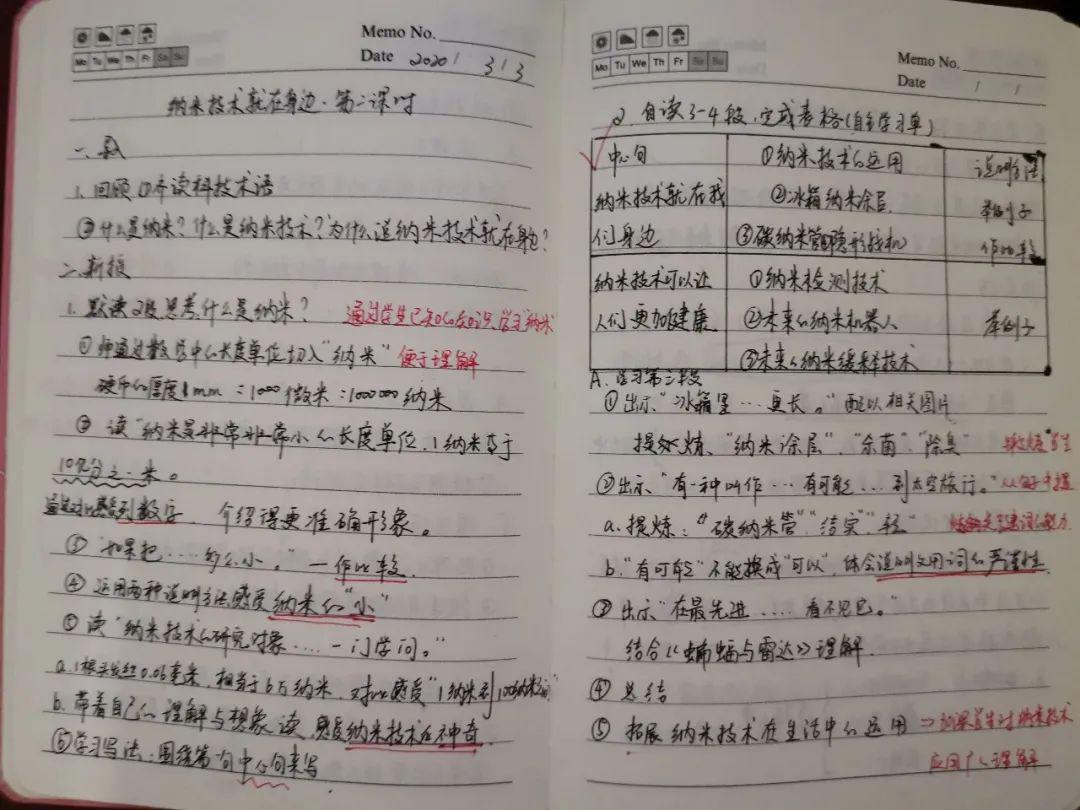 Memo No.
Mo Tu We Th Fr Sa Su
Date 2020/ 3/3
纳米技术就在身边·第二课时
一、
1. 回顾 ①齐读科技术语
②什么是纳米?什么是纳米技术?为什么说纳米技术就在身边?
二、新授
1. 默读2段思考什么是纳米? 通过学生已知的知识,学习"纳米"
①师通过数学中的长度单位切入"纳米" 便于理解
硬币的厚度1mm = 1000微米 = 1000000纳米
② 读"纳米是非常非常小的长度单位,1纳米等于
10亿分之一米。
通过对比感受到数字,介绍得更准确形象。
③ "如果把……的么小。" — 作比较
④ 运用两种说明方法感受纳米的"小"
⑤ 读"纳米技术的研究对象……一门学问。"
a. 1根头发丝0.06毫米,相当于6万纳米,对比感受"1纳米到100纳米之间"
b. 带着自己的理解与想象读,感受纳米技术的神奇.
⑥学习写法:围绕第1句中心句来写
Memo No.
Mo Tu We Th Fr Sa Su
Date / /
2. 自读3-4段,完成表格(自主学习单)
中心句 ①纳米技术的运用 说明方法
纳米技术就在我 ②冰箱纳米涂层 举例子
们身边 ③碳纳米管隐形战机 作比较
纳米技术可以让 ①纳米检测技术
人们更加健康 ②未来的纳米机器人 举例子
③未来的纳米缓释技术
A. 学习第三段
①出示"冰箱里…更长。"配以相关图片
提炼"纳米涂层"、"杀菌"、"除臭"
②出示"有一种叫作…有可能…到太空旅行。"从句子中提
a. 提炼:"碳纳米管""结实""轻"
b. "有可能"不能换成"可以",体会说明文用词的严谨性
③ 出示"在最先进……看不见它。"
结合《蝙蝠与雷达》理解.
④ 总结
⑤ 拓展纳米技术在生活中的运用 ⇒ 加深学生对纳米技术
应用广的理解